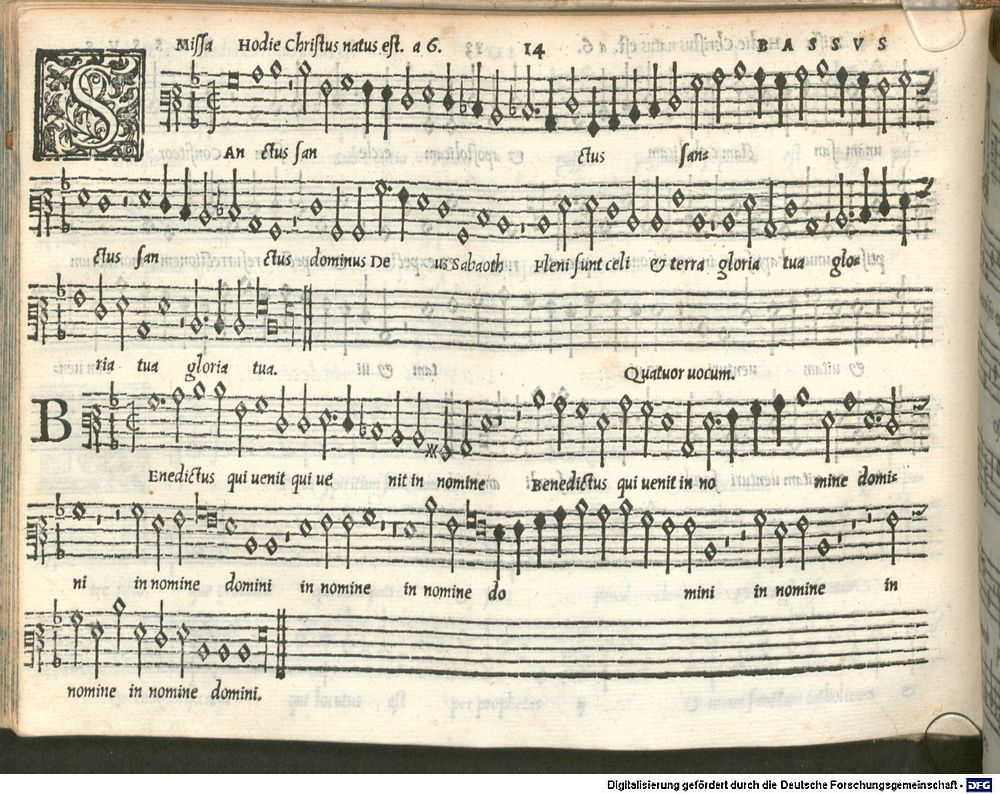 Missa Hodie Christus natus est. a 6. 14 BASSVS
SAn ctus san ctus san=
ctus san ctus dominus De us Sabaoth Pleni sunt celi & terra gloria tua glo=
ria tua gloria tua.
Quatuor uocum.
BEnedictus qui uenit qui ue nit in nomine Benedictus qui uenit in no mine domi=
ni in nomine domini in nomine in nomine do mini in nomine in
nomine in nomine domini.
Digitalisierung gefördert durch die Deutsche Forschungsgemeinschaft - DFG